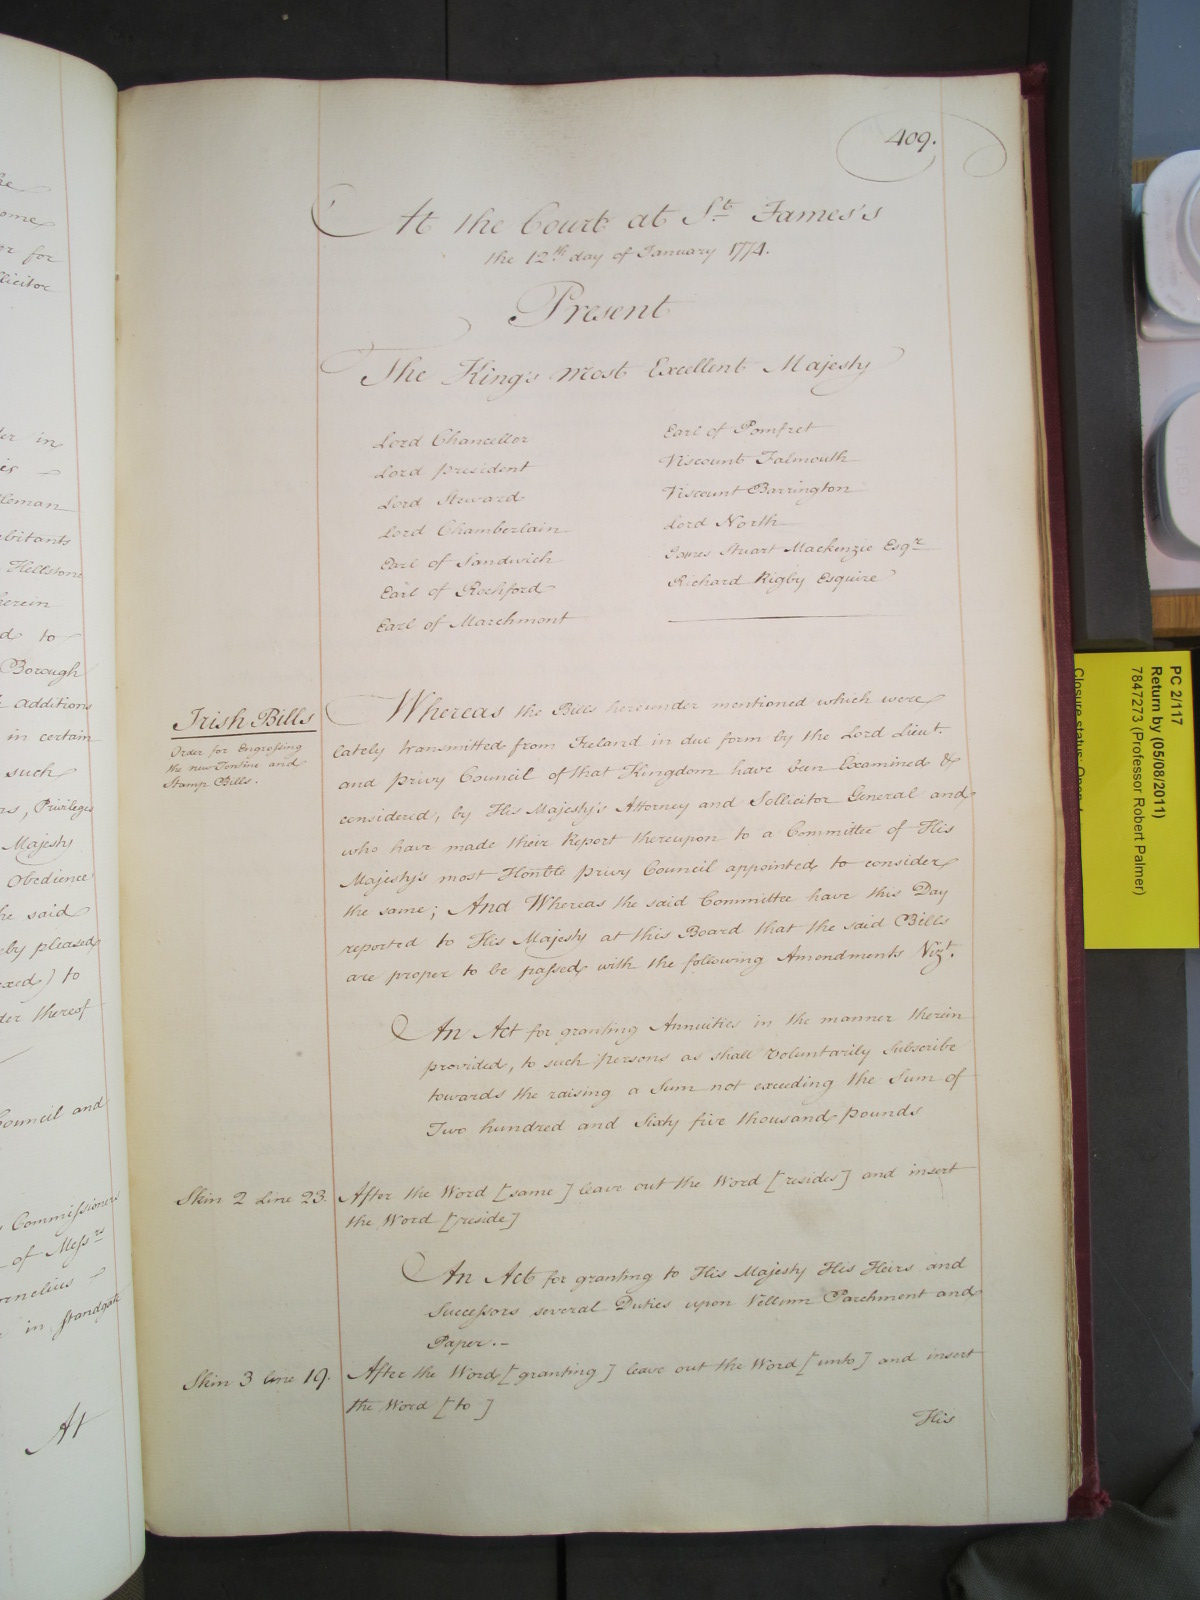 409.
At the Court at St. James's
the 12th day of January 1774.
Present
The King's most Excellent Majesty
Lord Chancellor
Lord President
Lord Steward
Lord Chamberlain
Earl of Sandwich
Earl of Rochford
Earl of Marchmont
Earl of Pomfret
Viscount Falmouth
Viscount Barrington
Lord North
James Stuart Mackenzie Esqr
Richard Rigby Esquire
Irish Bills
Order for Engrossing
the new Tontine and
Stamp Bills.
Whereas the Bills hereunder mentioned which were
lately transmitted from Ireland in due form by the Lord Lieut.
and Privy Council of that Kingdom have been Examined &
considered, by His Majesty's Attorney and Sollicitor General and
who have made their Report thereupon to a Committee of His
Majesty's most Honble Privy Council appointed to consider
the same; And Whereas the said Committee have this Day
reported to His Majesty at this Board that the said Bills
are proper to be passed with the following Amendments Vizt.
An Act for granting Annuities in the manner therein
provided, to such persons as shall voluntarily Subscribe
towards the raising a Sum not exceeding the Sum of
Two hundred and Sixty five thousand Pounds
Skin 2 Line 23. After the Word [same] leave out the Word [resides] and insert
the Word [reside]
An Act for granting to His Majesty His Heirs and
Successors several Duties upon Vellum Parchment and
Paper.-
Skin 3 line 19. After the Word [granting] leave out the Word [unto] and insert
the Word [to]
His
ome
or for
llicitor
in
leman
bitants
Hellstone
herein
d to
Borough
additions
in certain
such
Privileges
Majesty
Obedience
he said
by pleased
) to
der thereof
Council and
Commissioners
of Messrs
ornelius
in Standgate
At
PC 2/117
Return by (05/08/2011)
7847273 (Professor Robert Palmer)
Closure status: Open